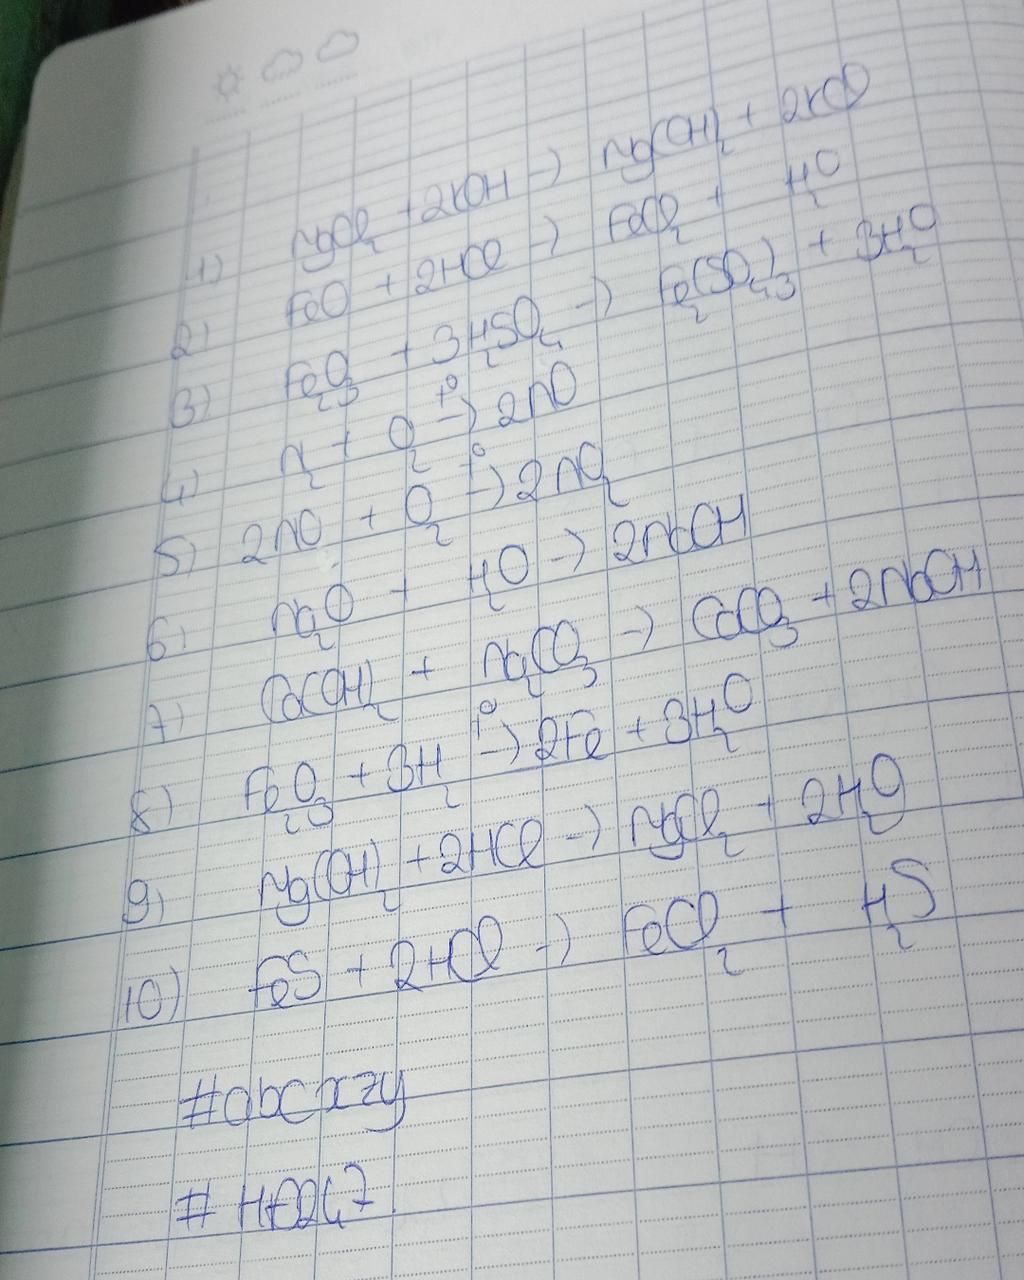 1) MgCl₂ + 2KOH → Mg(OH)₂ + 2KCl
2) FeO + 2HCl → FeCl₂ + H₂O
3) Fe₂O₃ + 3H₂SO₄ → Fe₂(SO₄)₃ + 3H₂O
4) N₂ + O₂ t°→ 2NO
5) 2NO + O₂ t°→ 2NO₂
6) Na₂O + H₂O → 2NaOH
7) Ca(OH)₂ + Na₂CO₃ → CaCO₃ + 2NaOH
8) Fe₂O₃ + 3H₂ t°→ 2Fe + 3H₂O
9) Mg(OH)₂ + 2HCl → MgCl₂ + 2H₂O
10) FeS + 2HCl → FeCl₂ + H₂S
#abcxzy